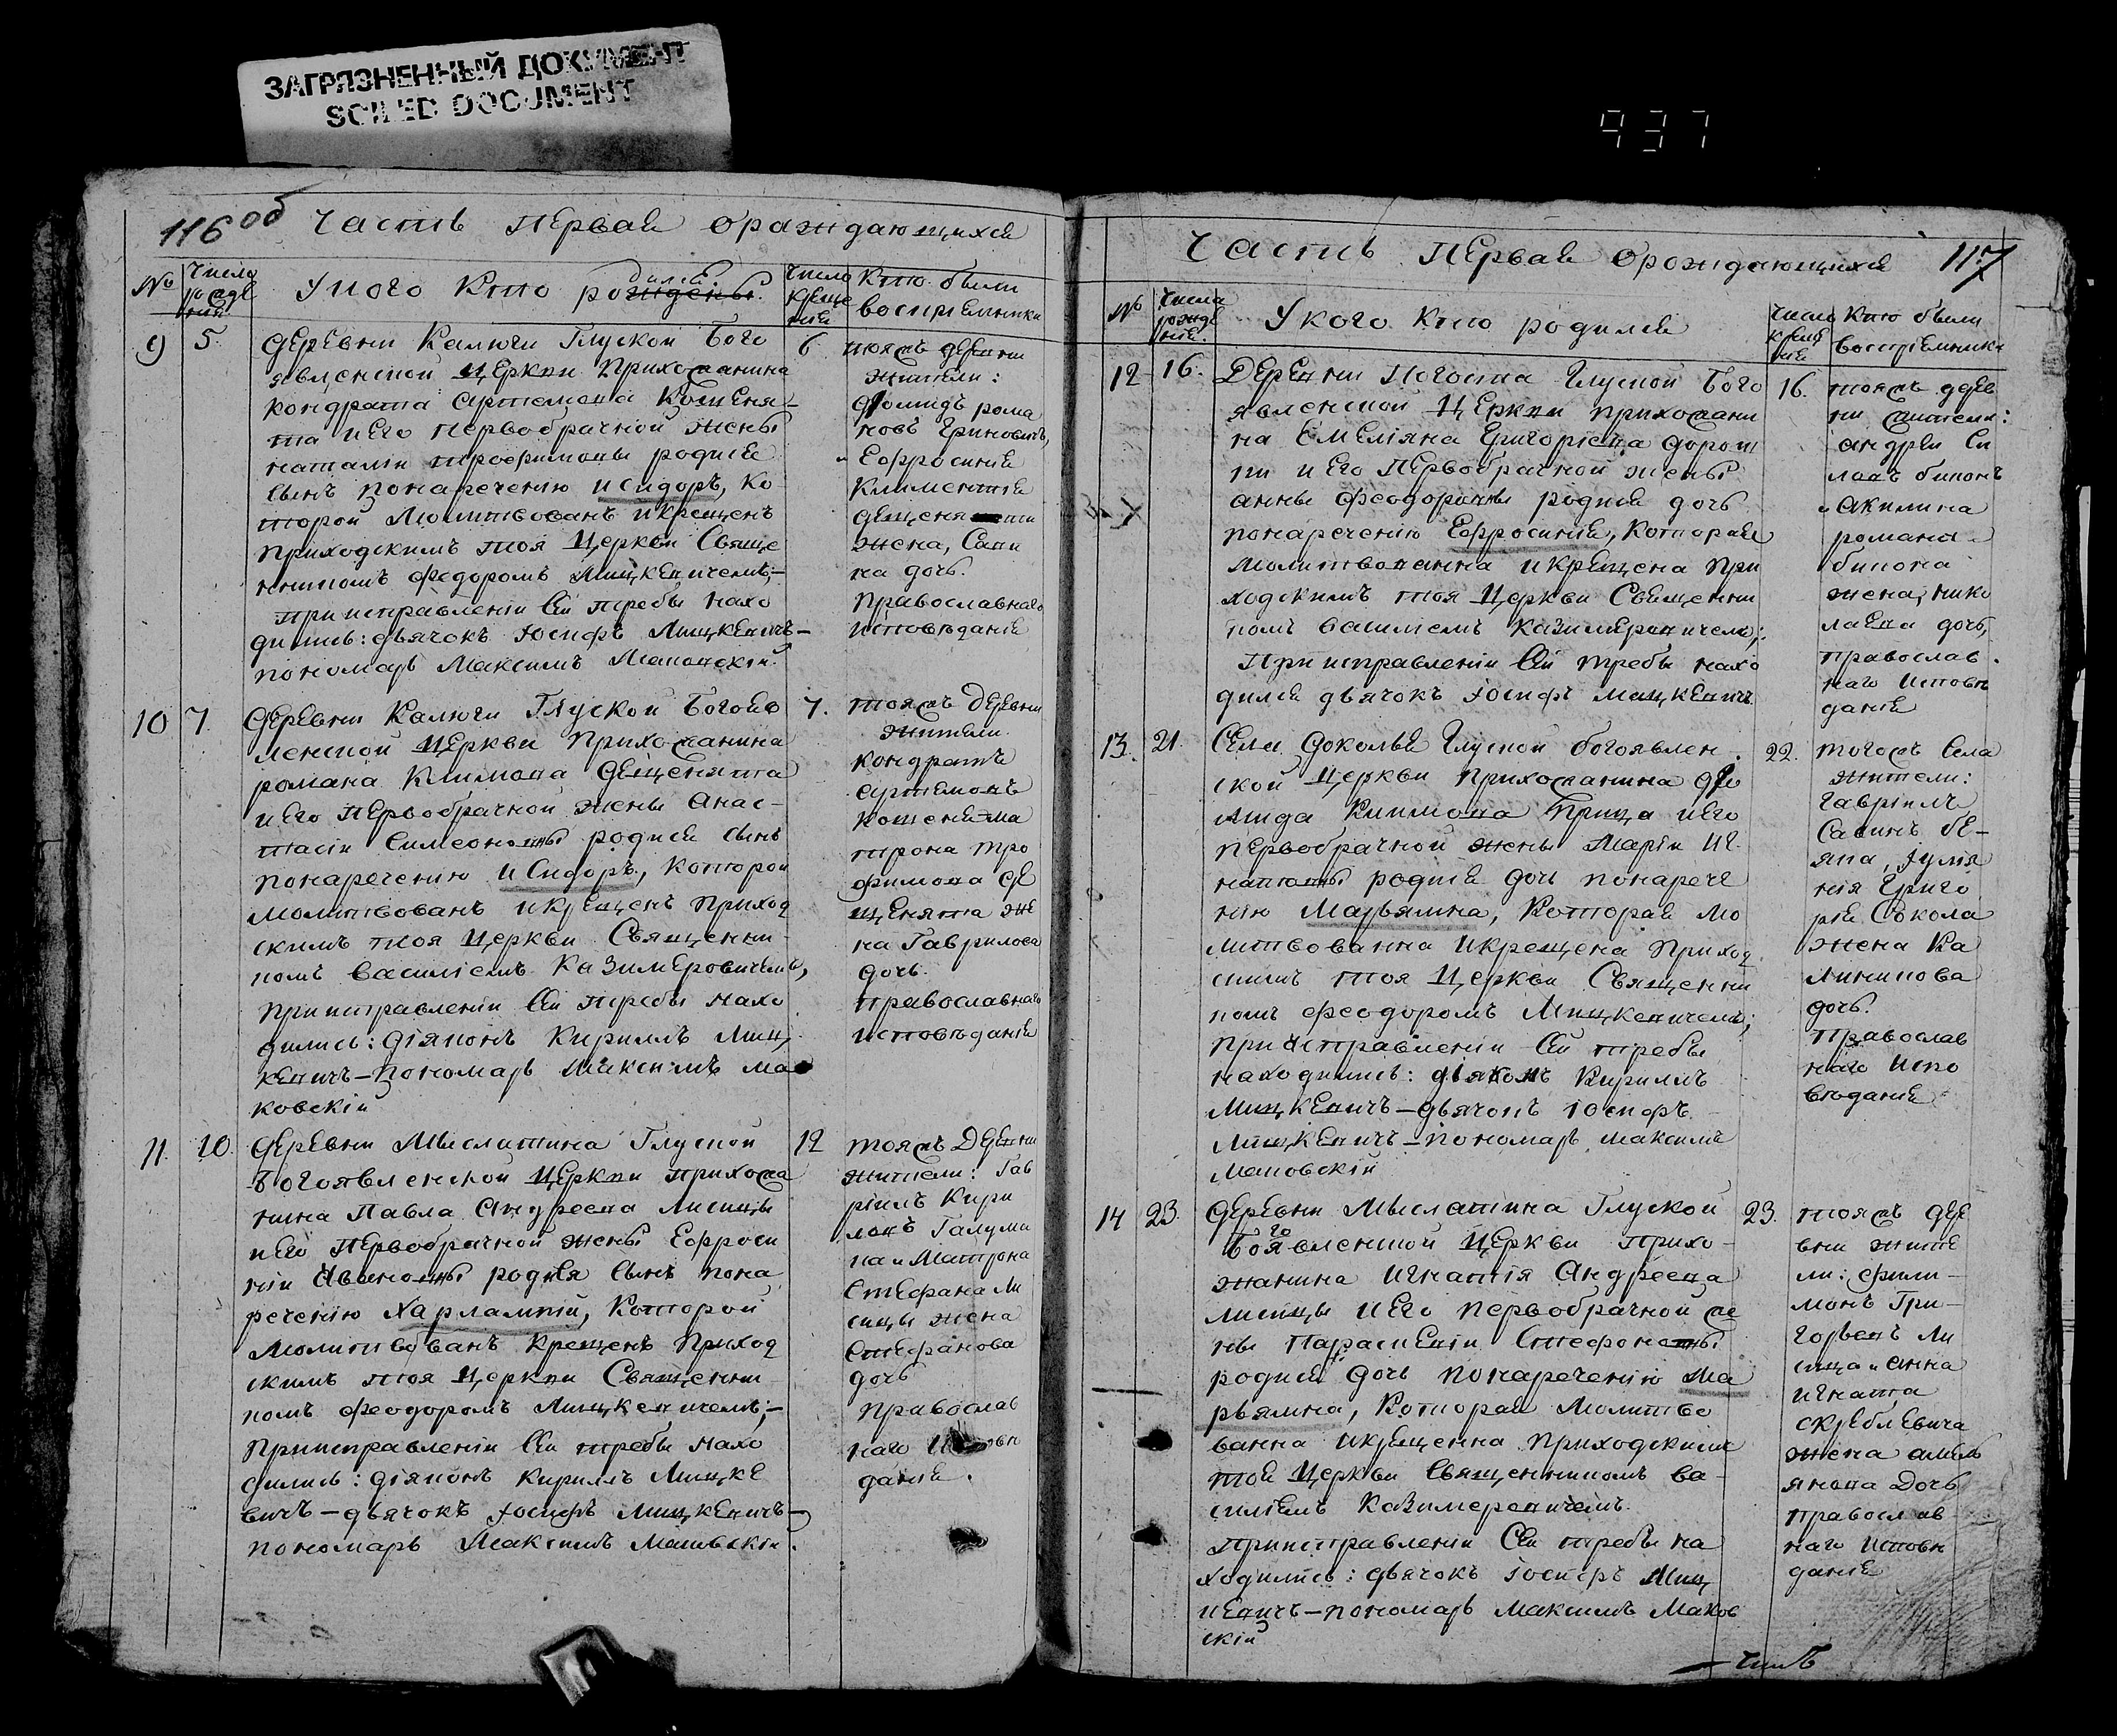 ЗАГРЯЗНЕННЫЙ ДОКУМЕНТ
SOILED DOCUMENT
937
116 об
Часть первая ораждающихся
№
Число рожде ния
У кого кто родился
Число креще ния
Кто были восприемники
9
5.
Деревни Калюги Глуской Бого
явленской Церкви Прихожанина
Кондрата Артемова Кошеня–
та и его первобрачной жены
Наталіи Трофимовы родися
сынъ понаречению Исидоръ, ко
торой Молитвованъ и крещенъ
приходскимъ тоя Церкви Свяще
нникомъ Федоромъ Мицкевичемъ;–
При исправленіи сей требы нахо
дились: дьячокъ Іосифъ Мицкевичъ–
пономарь Максимъ Маковскій.
6
тояжъ деревни
жители:
Диомидъ рома
новъ Гриновичъ,
и Ефросиния
Климентия
Дещеняти
жена, Сави
на дочь.
Православнаго
исповѣдания
10
7.
Деревни Калюги Глуской Богояв
ленской Церкви Прихожанина
романа Климова Дещенята
и его Первобрачной жены Анас–
тасіи Симеоновы родися сынъ
понаречению Исидоръ, которой
молитвованъ и крещенъ Приход
скимъ тоя Церкви Священни–
комъ Василіемъ Казимеровичемъ,
При исправленіи сей требы нахо
дились: Діяконъ Кириллъ Миц
кевичъ–пономарь Максимъ Ма
ковскій
7.
тояжъ Деревни
жители.
Кондратъ
Артемовъ
Кошенята
трона тро
фимова Де
щенята же
на Гаврилова
дочь.
Православнаго
исповѣдания
11.
10.
Деревни Мыслатина Глуской
Богоявленской Церкви прихожа
нина Павла Андреева Лисицы
и его первобрачной жены Ефроси
ніи Ивановны родися сынъ пона
речению Харлампий, Которой
Молитвованъ крещенъ Приход
скимъ тоя Церкви Священни–
комъ Феодоромъ Мицкевичемъ;–
При исправленіи сей требы нахо
дились: Діяконъ Кириллъ Мицке
вичъ–дьячокъ Іосифъ Мицкевичъ–
пономарь Максимъ Маковскій.
12
тояжъ Деревни
жители: Гав
ріилъ Кири
ловъ Галуми
на и Матрона
Стефана Ли
сицы жена
Стефанова
дочь
Православ
наго
дания.
Часть первая орождающихся
117
№
Числа рожде ния.
У кого кто родился
Число креще ния
Кто были восприемники
12
16.
Деревни Погоста Глуской Бого
явленской Церкви прихожани
на Емеліяна Григоріева Дорош
ки и его Первобрачной жены
Анны Феодоровны родися дочь
понаречению Ефросиния, которая
Молитвованна и крещена При
ходскимъ тоя Церкви Священни
комъ Василіемъ Казимеровичемъ;
При исправленіи сей требы нахо
дился дьячокъ Іосифъ Мицкевичъ.
16.
тояжъ дерев
ни жители:
Андрей Си
ловъ биконъ
и Акилина
романа
бикона
жена, нико
лаева дочь,
православ
наго исповѣ
дания
13.
21.
Села Доколья Глуской богоявлен–
ской Церкви Прихожанина Дио
мида Климова Прица и его
первобрачной жены Маріи Иг
натовны родися дочь понарече
нию Марьямна, Которая мо
литвованна и крещена Приход
скимъ тоя Церкви Священни
комъ Феодоромъ Мицкевичемъ;
При исправленіи сей требы
находились: дьяконъ Кириллъ
Мицкевичъ–дьячокъ Іосифъ
Мицкевичъ–пономарь Максимъ
Маковскій
22.
тогожъ Села
жители:
Гавріилъ
Савинъ бе–
яна, Іулія
нія Григо
рія Сокола
жена Ка
линикова
дочь.
Православ
наго Испо
вѣдания
14
23.
Деревни Мыслатина Глуской
Богоявленской Церкви Прихо–
жанина Игнатія Андреева
лисицы и его первобрачной же
ны Параскевіи Стефоновны
родися дочь понаречению Ма
рьямна, Которая Молитво
ванна и крещенна Приходскимъ
тоя Церкви Священникомъ Ва–
силіемъ Казимеровичемъ.
При исправленіи Сей требы на
ходились: дьячокъ Іосифъ Миц
кевичъ–пономарь Максимъ Маков
скій
23.
тояжъ дере
вни жите
ли: Фили–
монъ Гри–
горьевъ Ли
сица и Анна
Игната
Скреблевича
жена Амель
янова Дочь
Православ
наго исповѣ
дания